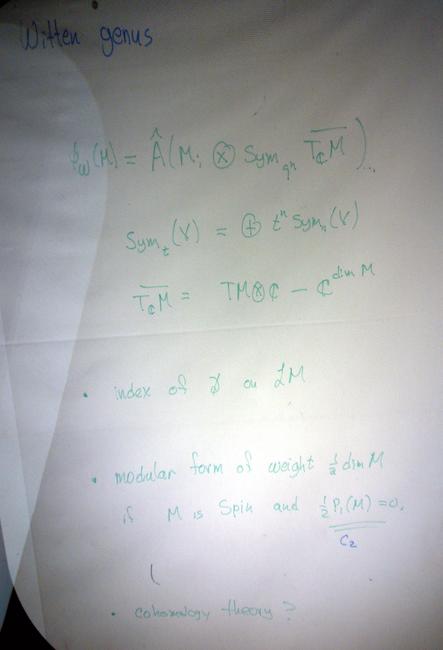 Witten genus
ϕ_W(M) = Â(M; ⊗ Sym_{q^n} \overline{T_ℂM})...
Sym_t(V) = ⊕ t^n Sym_n(V)
\overline{T_ℂM} = TM⊗ℂ − ℂ^{dim M}
• index of D̸ on LM
• modular form of weight ½ dim M
if M is Spin and ½ p₁(M) = 0.
c₂
(
• cohomology theory?